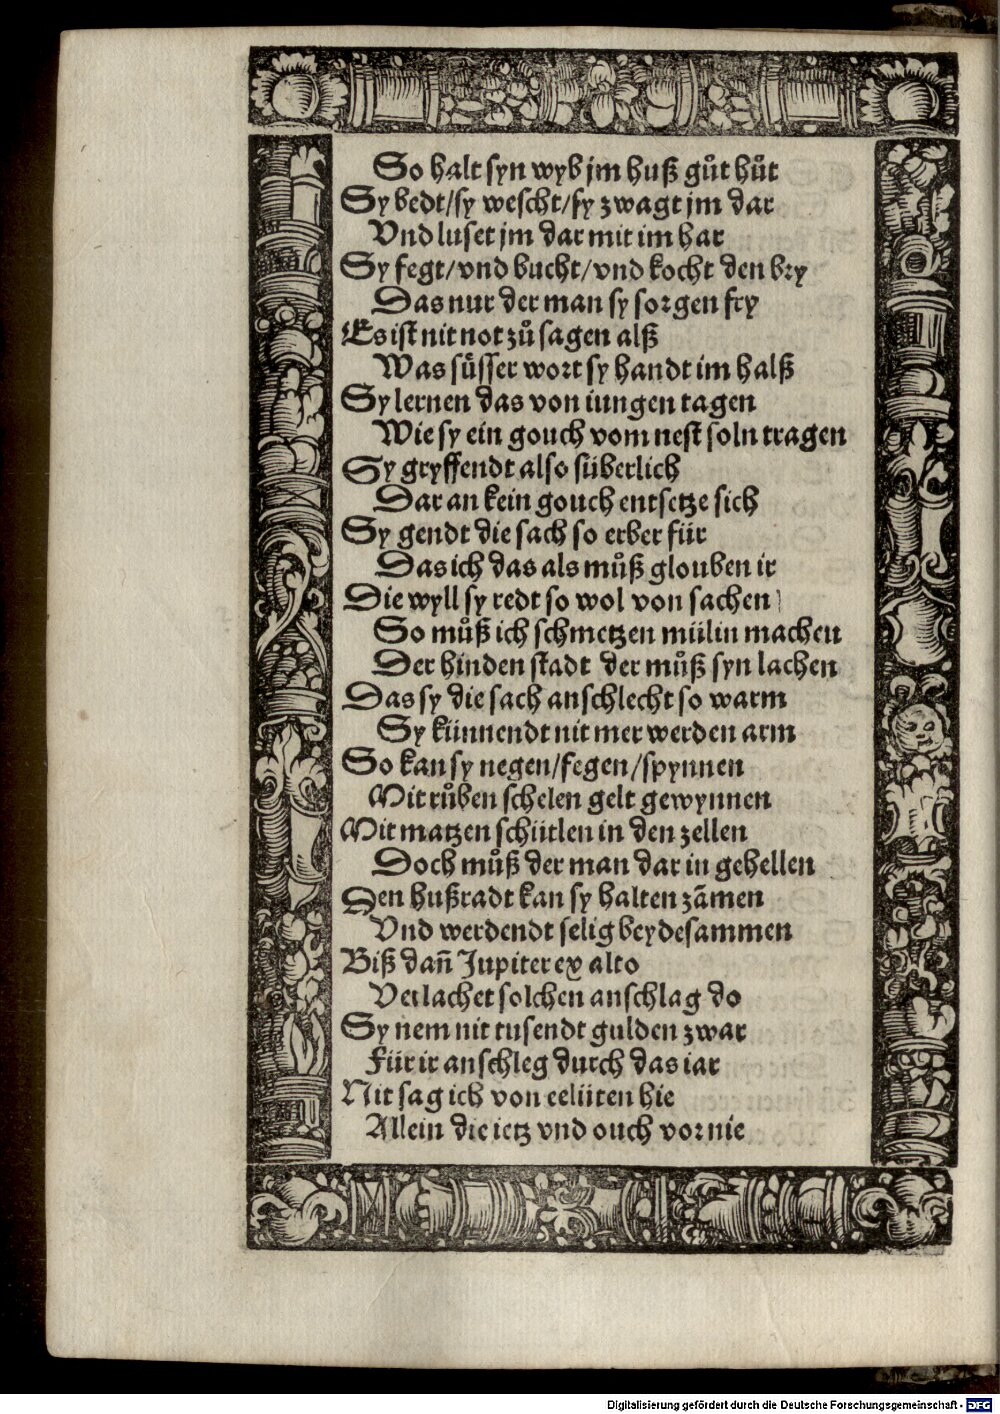 So halt syn wyb jm huß gůt hůt
Sy bedt/sy wescht/sy zwagt jm dar
Vnd luset jm dar mit im har
Sy fegt/vnd bucht/vnd kocht den bry
Das nur der man sy sorgen fry
Es ist nit not zů sagen alß
Was süsser wort sy handt im halß
Sy lernen das von iungen tagen
Wie sy ein gouch vom nest soln tragen
Sy gryffendt also süberlich
Dar an kein gouch entsetze sich
Sy gendt die sach so erber für
Das ich das als můß glouben ir
Die wyll sy redt so wol von sachen
So můß ich schmetzen mülin machen
Der hinden stadt der můß syn lachen
Das sy die sach anschlecht so warm
Sy künnendt nit mer werden arm
So kan sy negen/fegen/spynnen
Mit růben schelen gelt gewynnen
Mit matzen schütlen in den zellen
Doch můß der man dar in gehellen
Den hußradt kan sy halten zãmen
Vnd werdendt selig beydesammen
Biß dañ Jupiter ex alto
Verlachet solchen anschlag do
Sy nem nit tusendt gulden zwar
Für ir anschleg durch das iar
Nit sag ich von eelüten hie
Allein die ietz vnd ouch vor nie
Digitalisierung gefördert durch die Deutsche Forschungsgemeinschaft - DFG